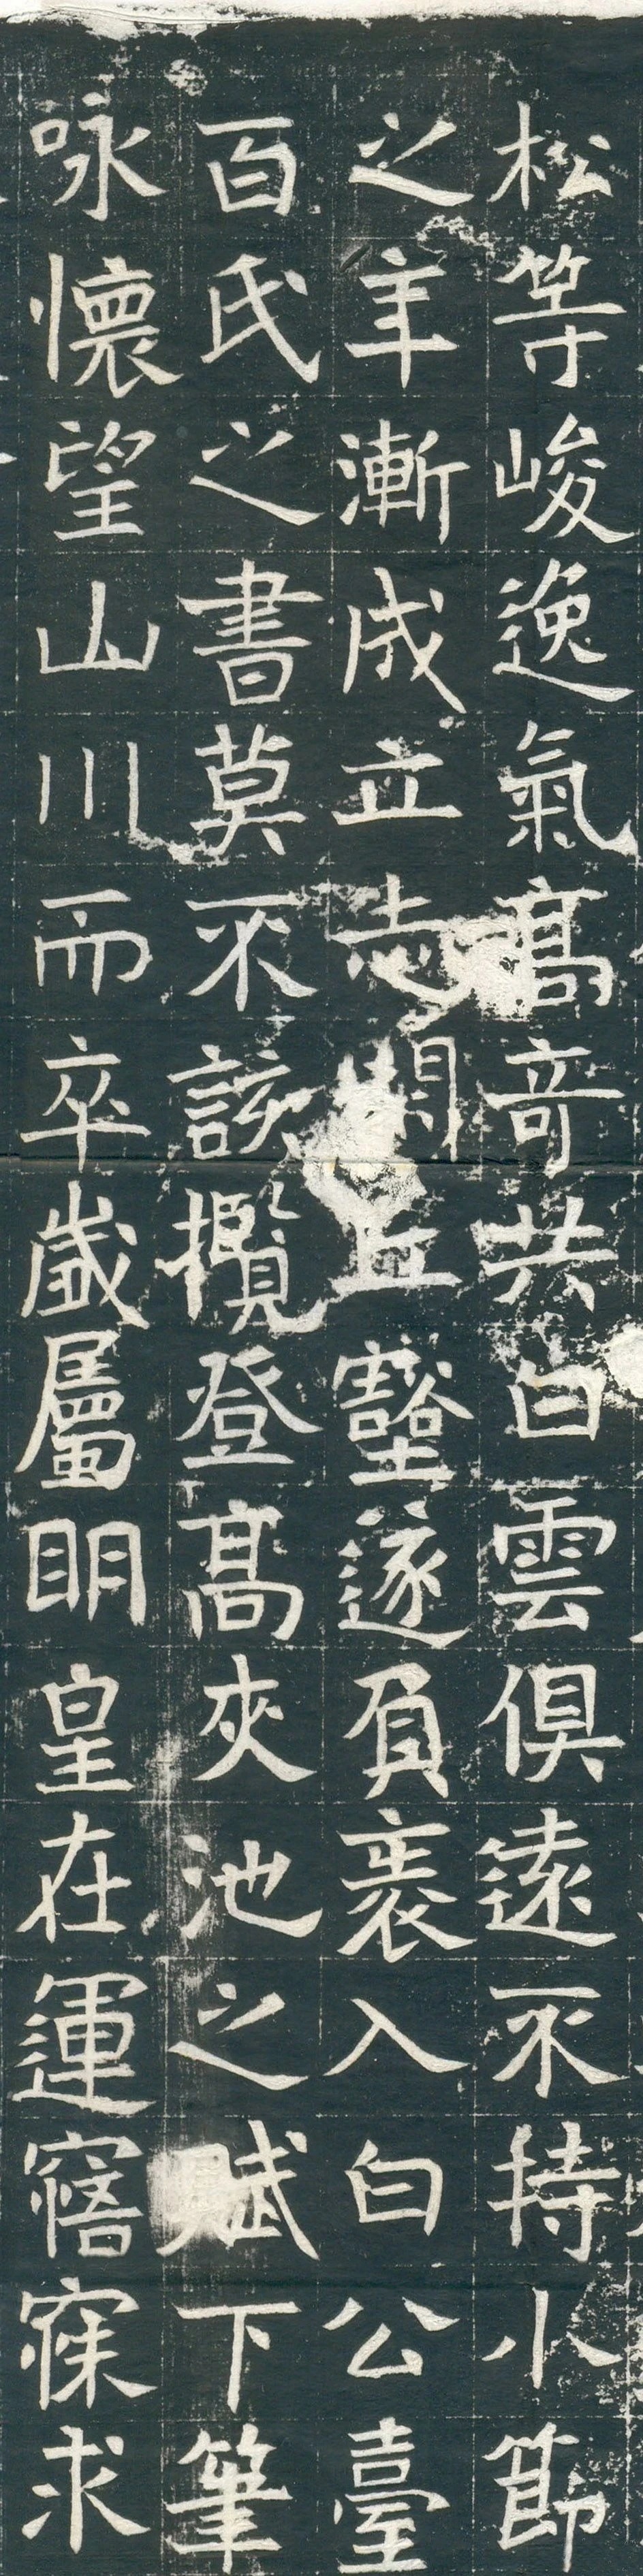 松等峻逸氣高奇共白雲俱遠不持小節
之年漸成立志閑丘壑遂負袠入白公臺
百氏之書莫不該攬登高夾池之賦下筆
咏懷望山川而卒歲屬明皇在運寤寐求